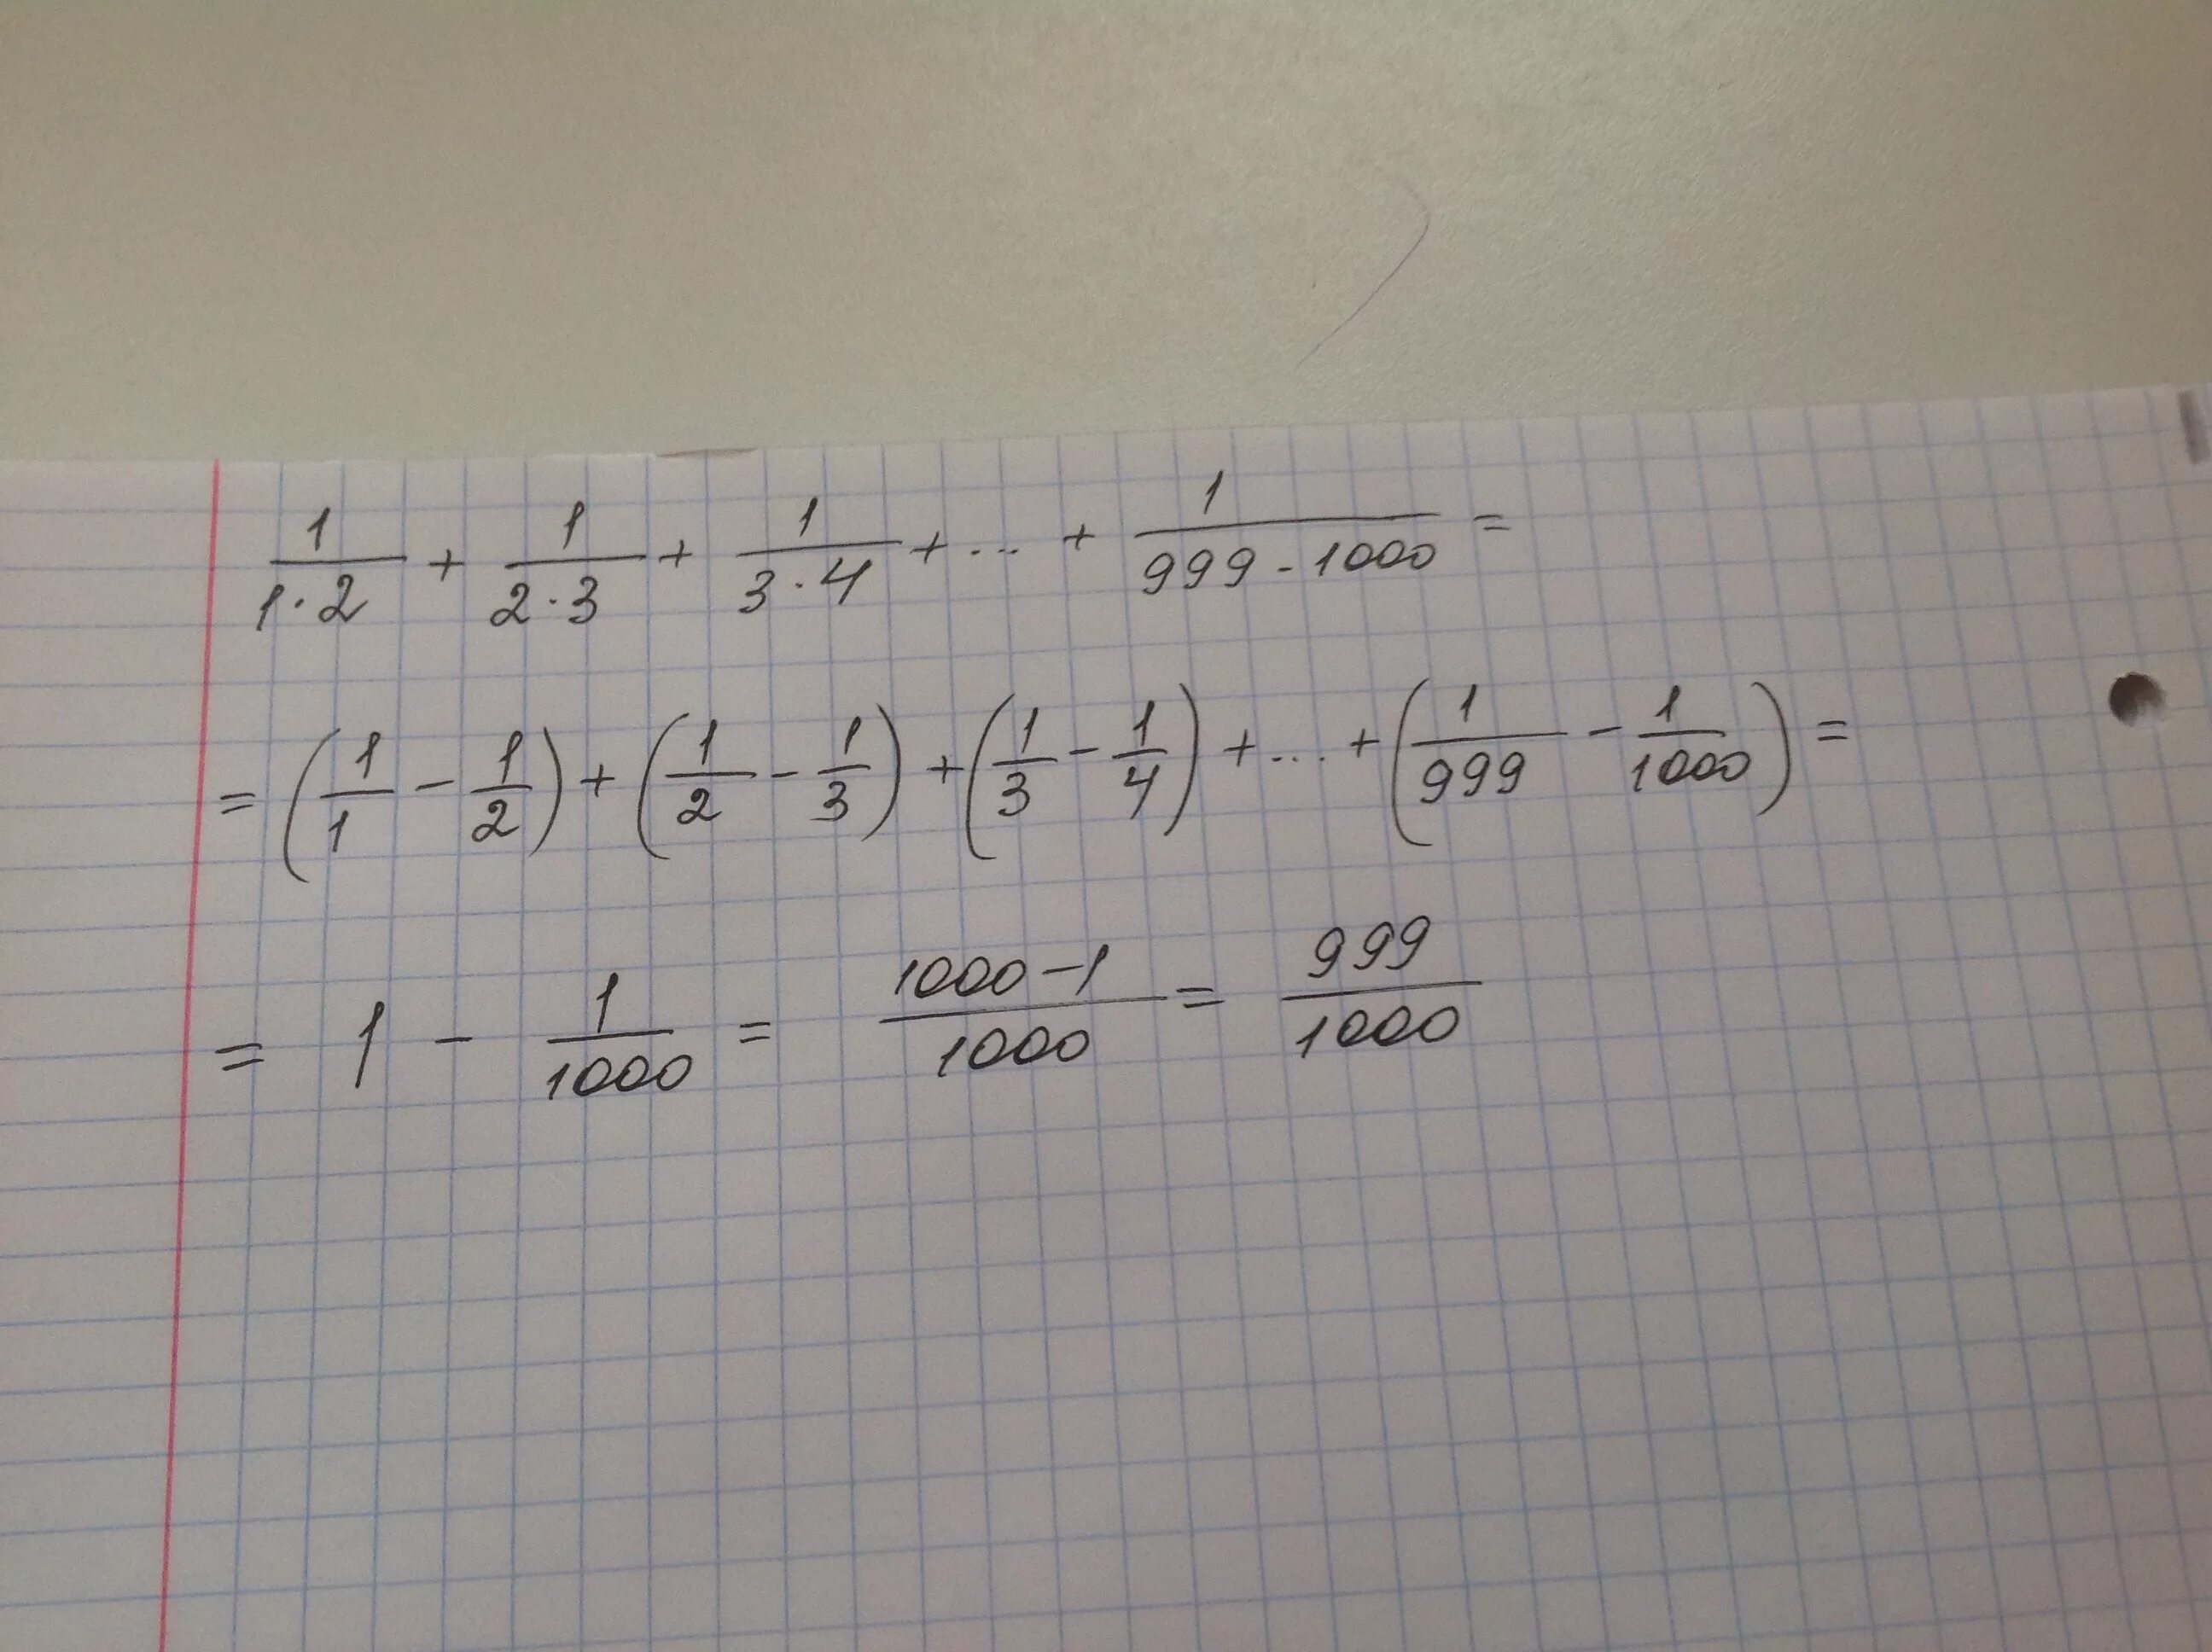 1/(1·2) + 1/(2·3) + 1/(3·4) + ... + 1/(999·1000) =
= (1/1 - 1/2) + (1/2 - 1/3) + (1/3 - 1/4) + ... + (1/999 - 1/1000) =
= 1 - 1/1000 = (1000-1)/1000 = 999/1000